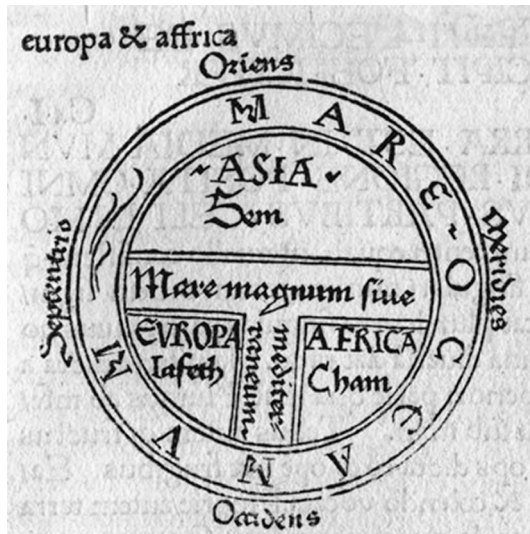 europa & affrica
Oriens
MARE · OCEANVM
ASIA
Sem
Septentrio
Meridies
Mare magnum ſiue
mediter
raneum
EVROPA
Iafeth
AFRICA
Cham
Occidens